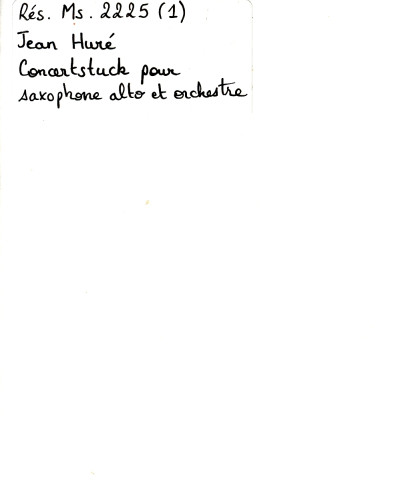 Rés. Ms. 2225 (1)
Jean Huré
Concertstuck pour
saxophone alto et orchestre